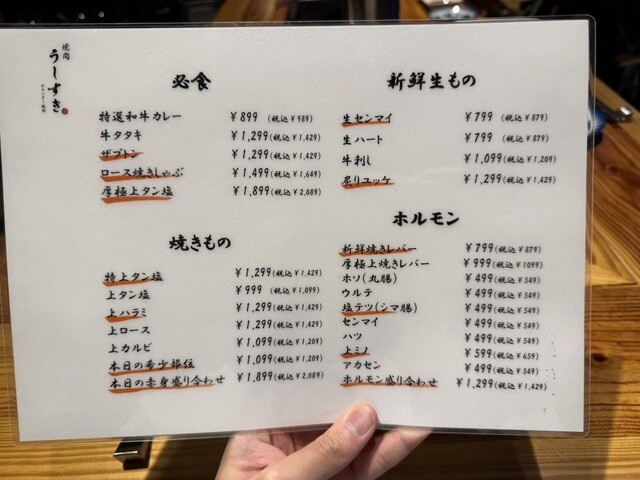 焼肉
うしすき
必食
特選和牛カレー ￥899 (税込￥989)
牛タタキ ￥1,299(税込￥1,429)
ザブトン ￥1,299(税込￥1,429)
ロース焼きしゃぶ ￥1,499(税込￥1,649)
厚極上タン塩 ￥1,899(税込￥2,089)
焼きもの
特上タン塩 ￥1,299(税込￥1,429)
上タン塩 ￥999 (税込￥1,099)
上ハラミ ￥1,299(税込￥1,429)
上ロース ￥1,299(税込￥1,429)
上カルビ ￥1,099(税込￥1,209)
本日の希少部位 ￥1,099(税込￥1,209)
本日の赤身盛り合わせ ￥1,899(税込￥2,089)
新鮮生もの
生センマイ ￥799 (税込￥879)
生ハート ￥799 (税込￥879)
牛刺し ￥1,099(税込￥1,209)
炙りユッケ ￥1,299(税込￥1,429)
ホルモン
新鮮焼きレバー ￥799(税込￥879)
厚極上焼きレバー ￥999(税込￥1099)
ホソ(丸腸) ￥499(税込￥549)
ウルテ ￥499(税込￥549)
塩テツ(シマ腸) ￥499(税込￥549)
センマイ ￥499(税込￥549)
ハツ ￥499(税込￥549)
上ミノ ￥599(税込￥659)
アカセン ￥499(税込￥549)
ホルモン盛り合わせ ￥1,299(税込￥1,429)